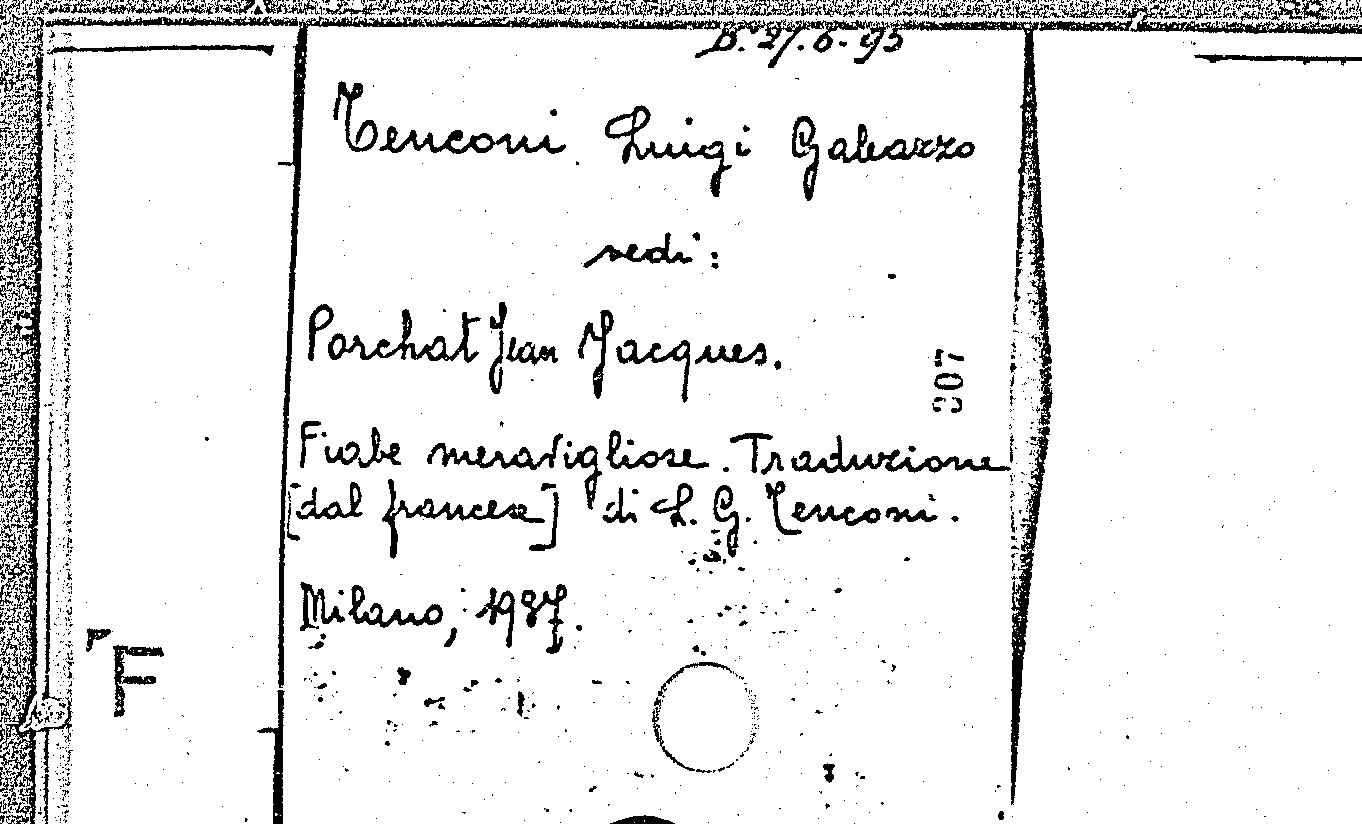 B. 27.6.93
Tenconi Luigi Galeazzo
vedi:
Porchat Jean Jacques.
307
Fiabe meravigliose. Traduzione
[dal francese] di L. G. Tenconi.
Milano, 1937.
F